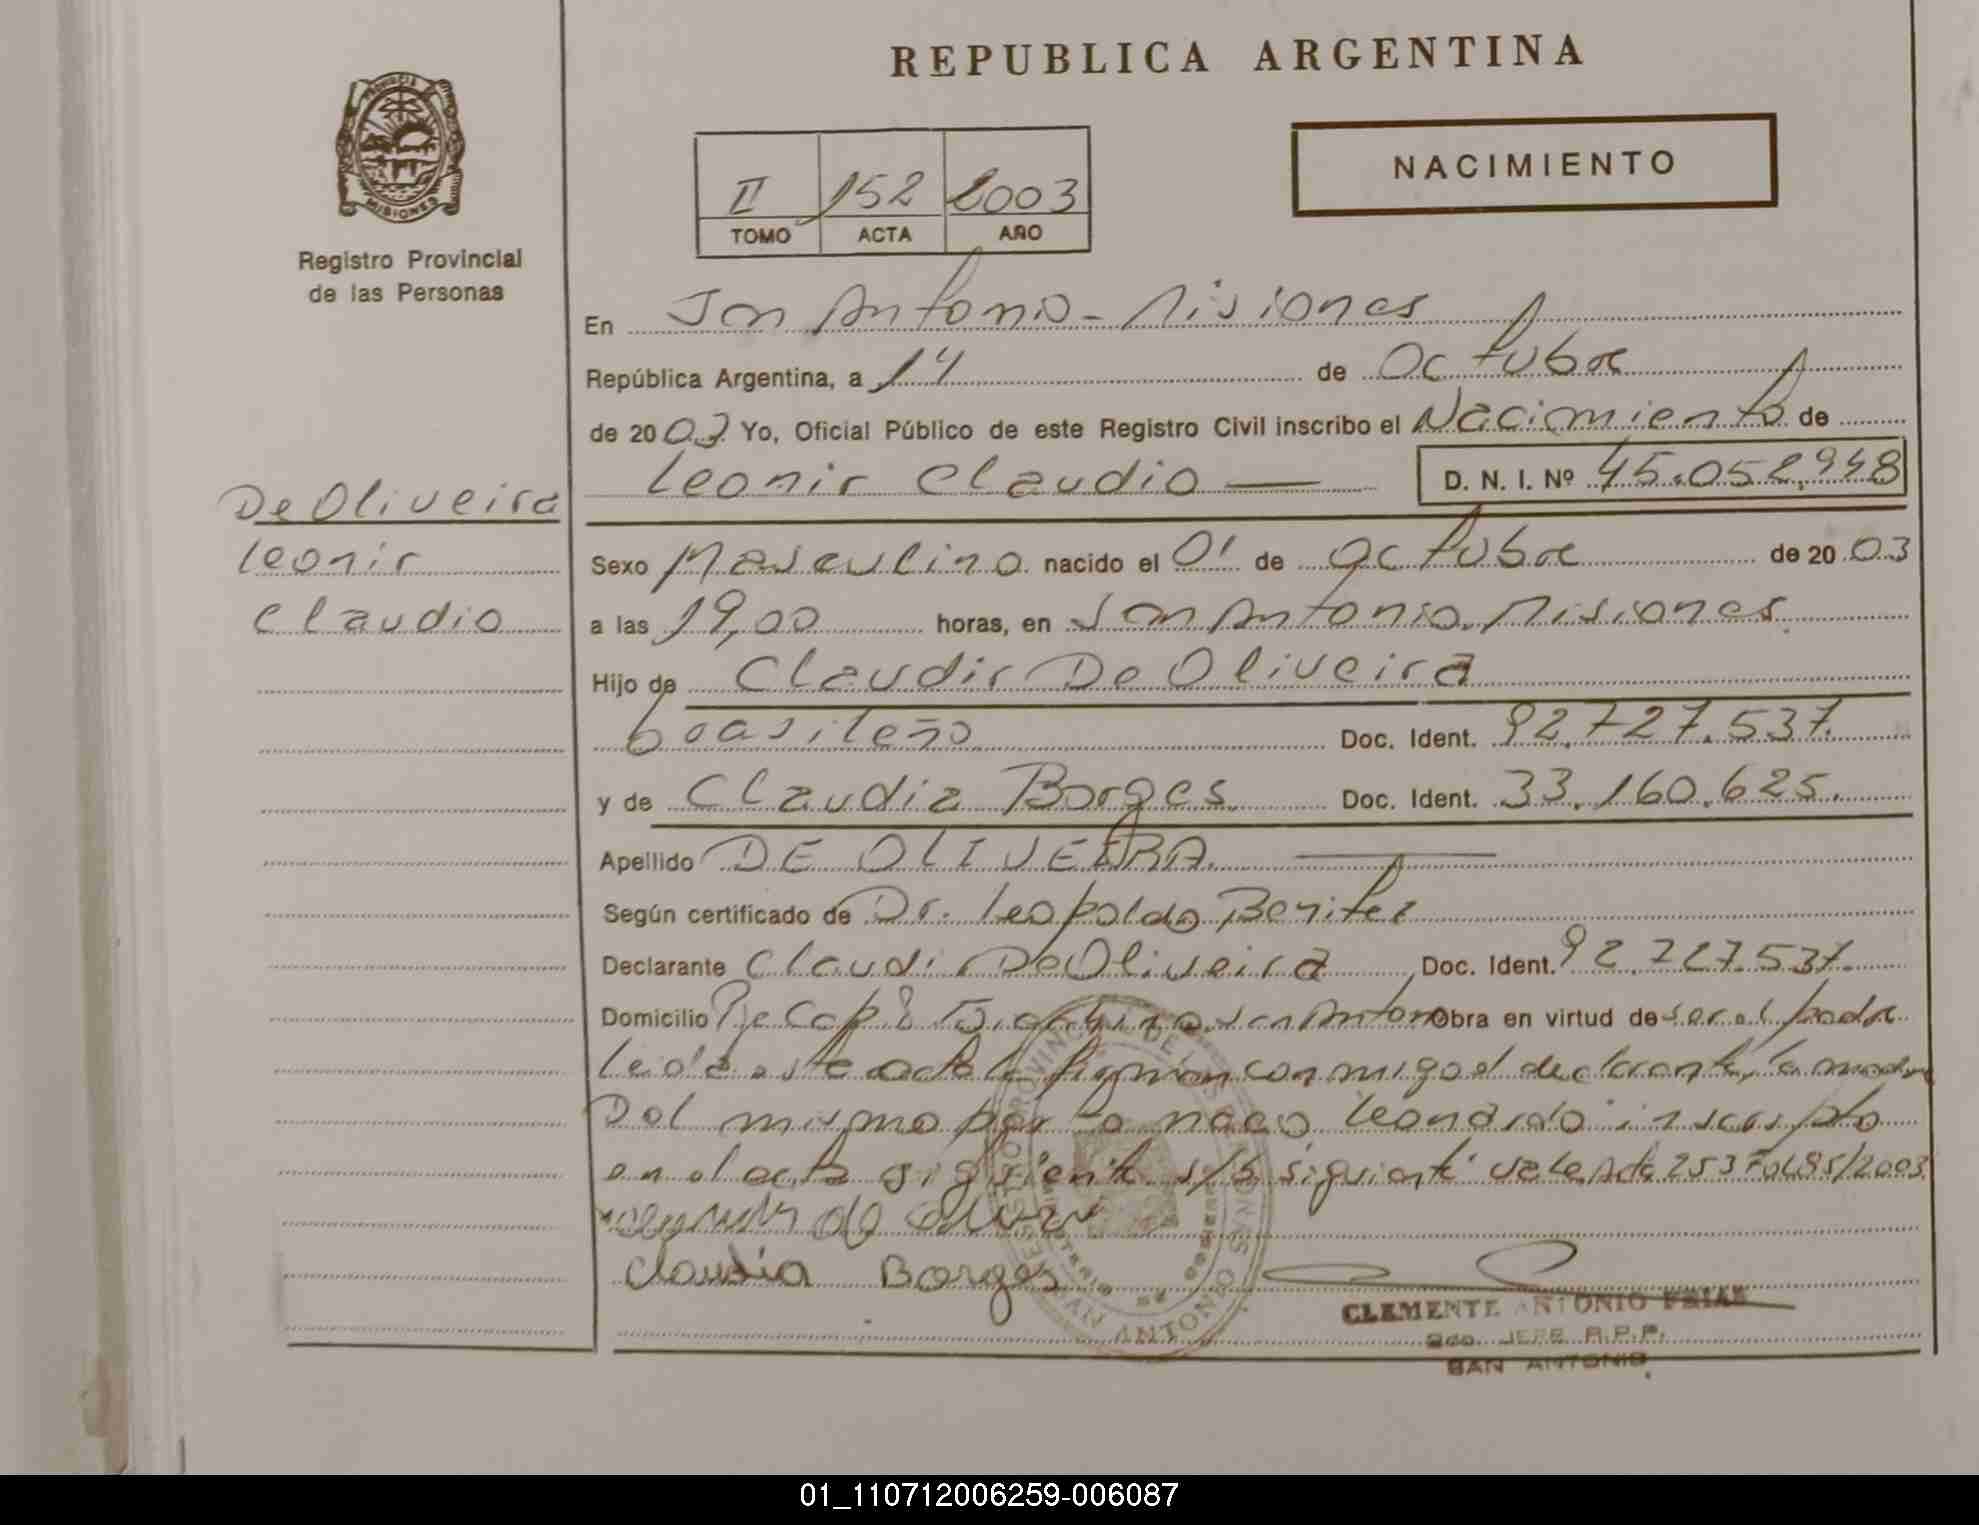 REPUBLICA ARGENTINA
PROVINCIA
MISIONES
Registro Provincial
de las Personas
II 152 2003
TOMO ACTA AÑO
NACIMIENTO
En San Antonio - Misiones
República Argentina, a 14 de Octubre
de 2003 Yo, Oficial Público de este Registro Civil inscribo el Nacimiento de
Leonir Claudio D. N. I. Nº 45.052.948
De Oliveira
Leonir
Claudio
Sexo Masculino nacido el 01 de Octubre de 2003
a las 19,00 horas, en San Antonio. Misiones
Hijo de Claudir De Oliveira
brasileño Doc. Ident. 92.727.537.
y de Claudia Borges Doc. Ident. 33.160.625.
Apellido DE OLIVEIRA.
Según certificado de Dr. Leopoldo Benitez
Declarante Claudir De Oliveira Doc. Ident. 92.727.537.
Domicilio San Antonio Obra en virtud de ser el padre
Leida este acta la firman conmigo el declarante, la madre
Del mismo inscripto
en el acta siguiente s/b siguiente vale
de
Claudia Borges
CLEMENTE ANTONIO FRIAS
2do. JEFE R.P.P.
SAN ANTONIO
01_110712006259-006087